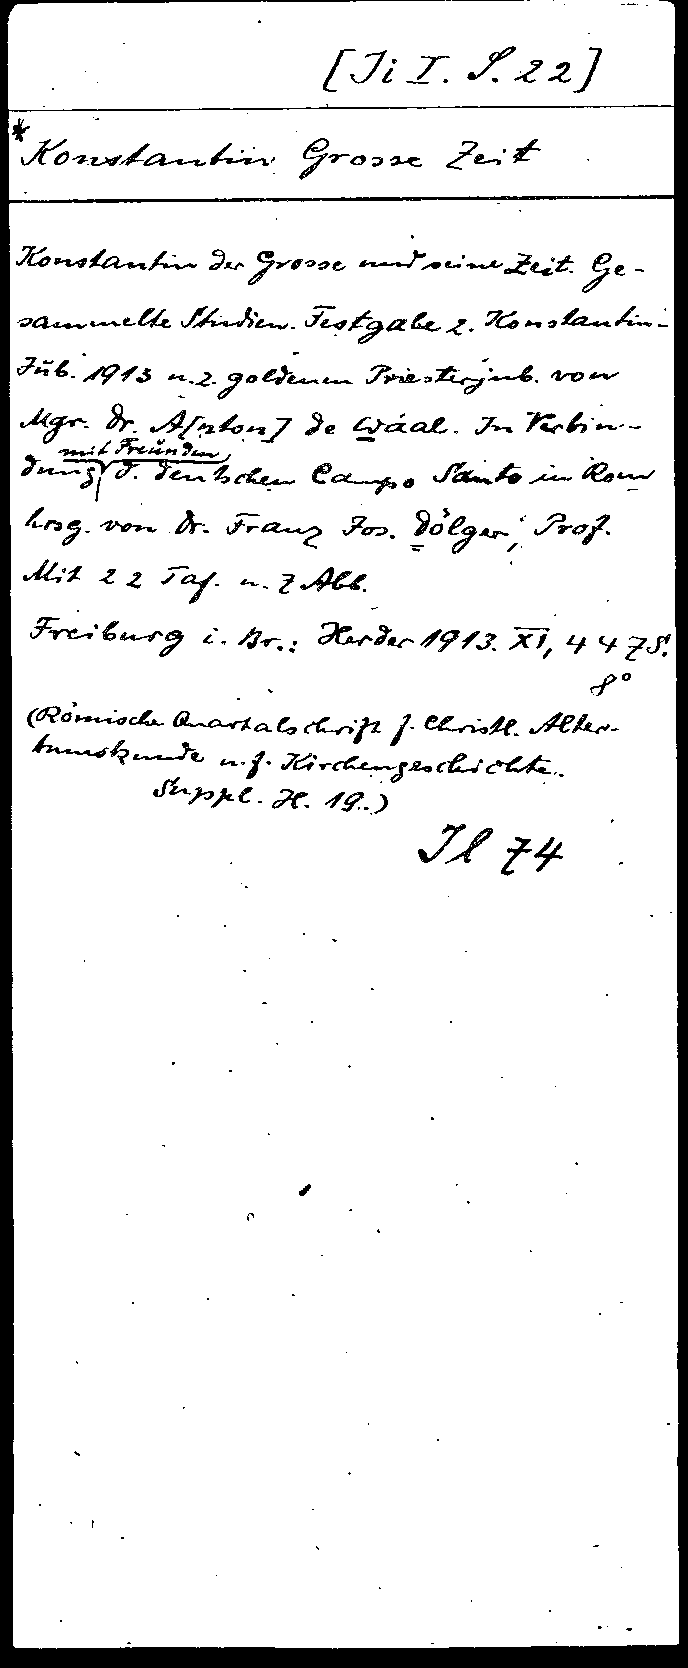 [Ji I. S. 22]
*Konstantin Grosse Zeit
Konstantin der Grosse und seine Zeit. Ge-
sammelte Studien. Festgabe z. Konstantin-
Jub. 1913 u. z. goldenen Priesterjub. von
Mgr. Dr. A[nton] de Waal. In Verbin-
mit Freunden
dung d. deutschen Campo Santo in Rom
hrsg. von Dr. Franz Jos. Dölger, Prof.
Mit 22 Taf. u. 7 Abb.
Freiburg i. Br.: Herder 1913. XI, 447 S.
8°
(Römische Quartalschrift f. Christl. Alter-
tumskunde u. f. Kirchengeschichte.
Suppl. H. 19.)
Il 74